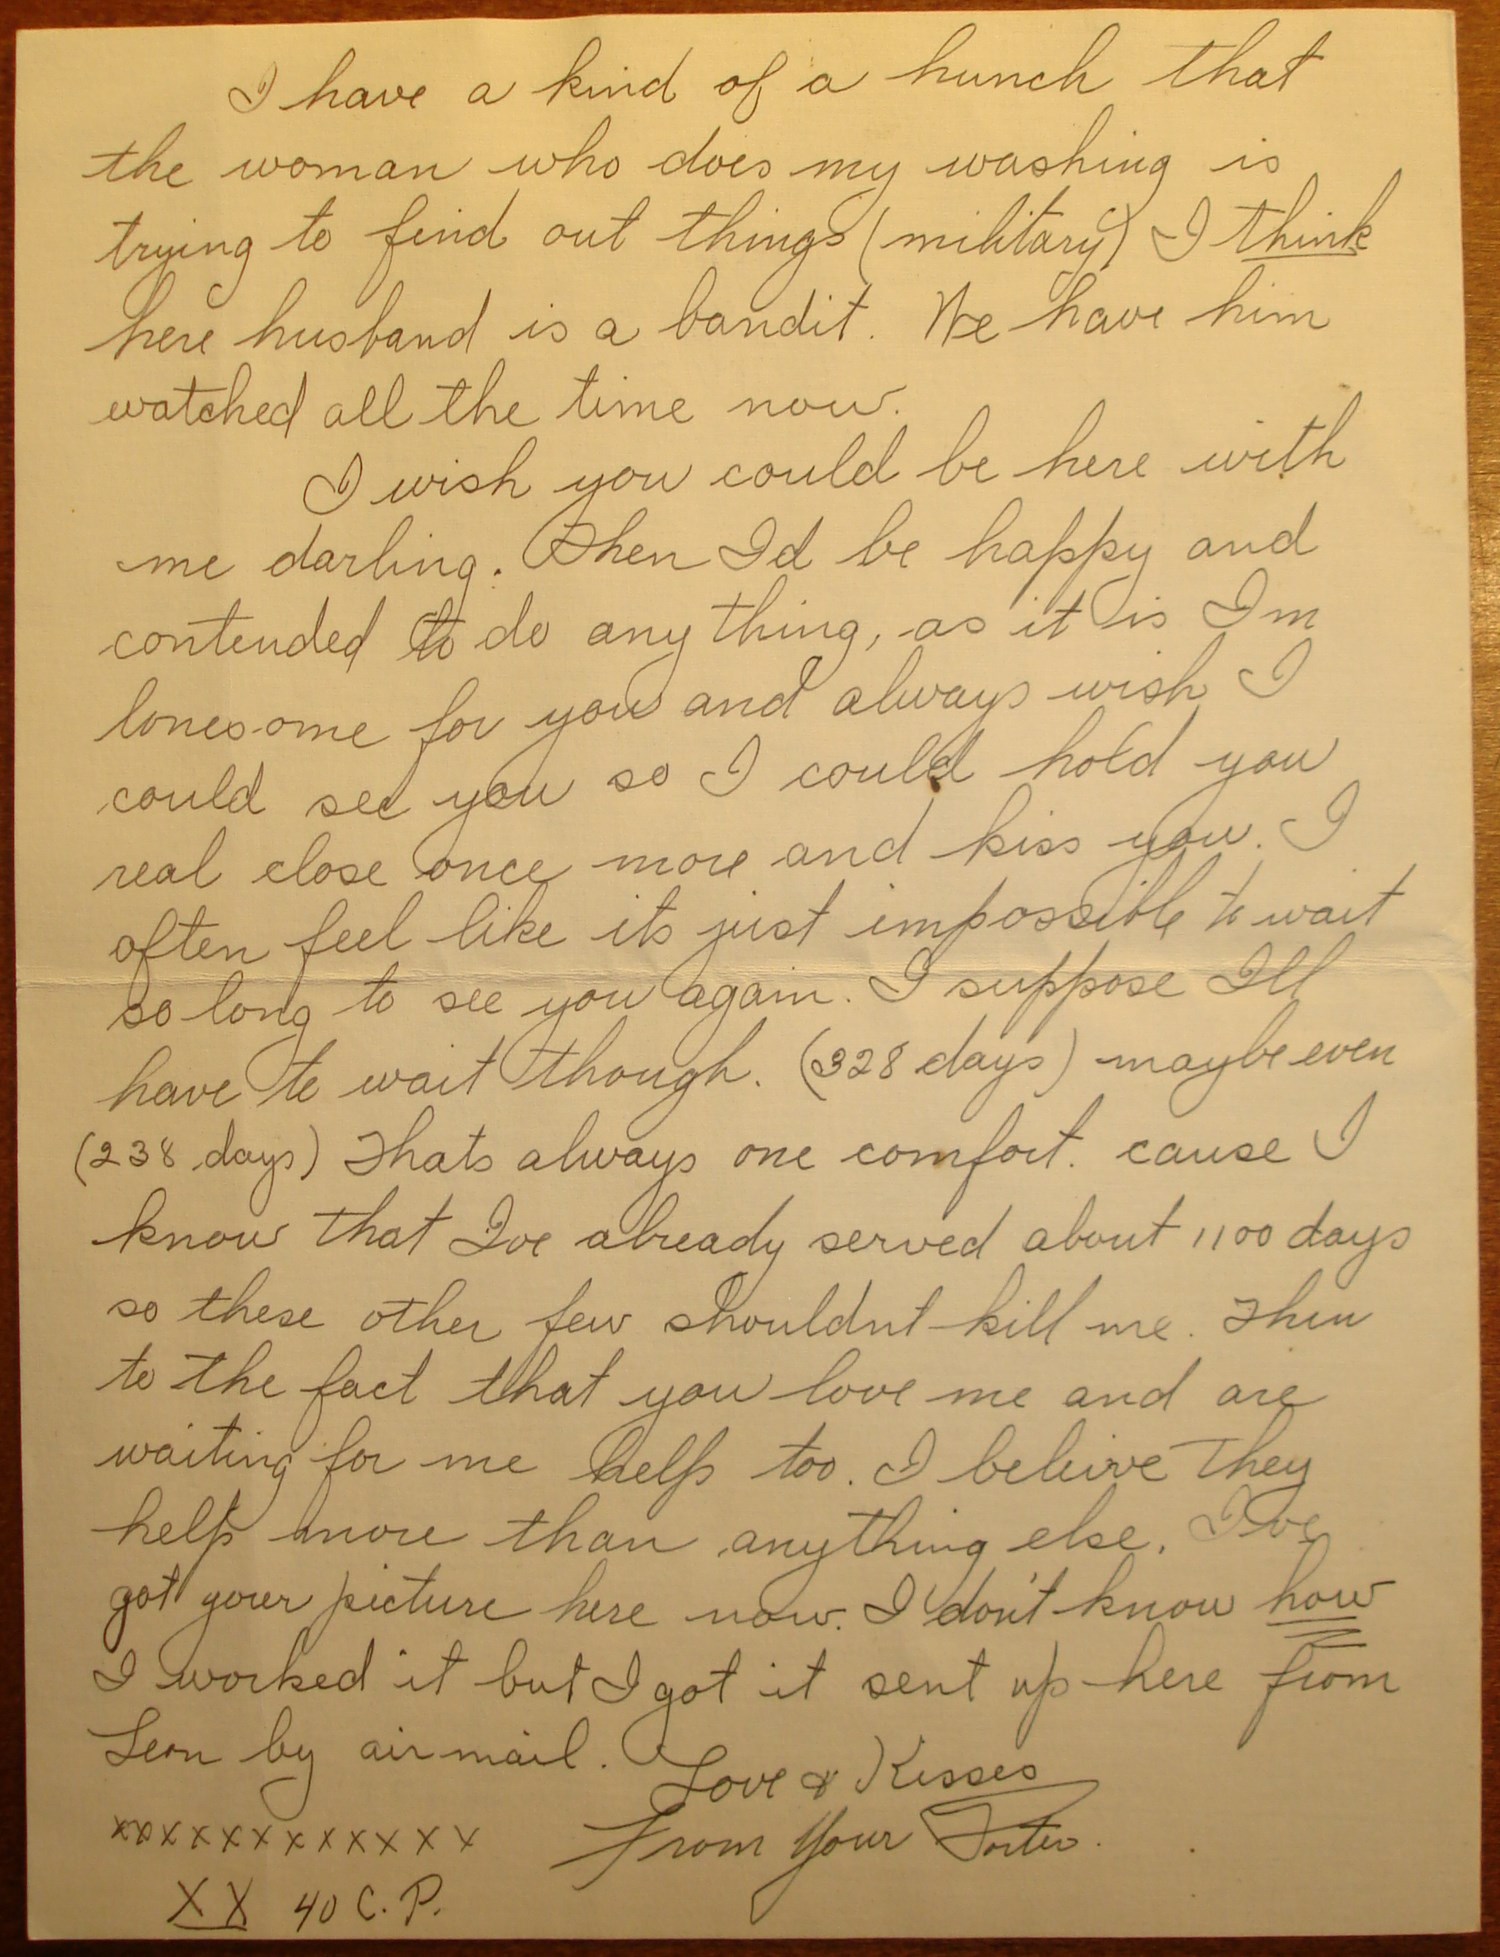 I have a kind of a hunch that
the woman who does my washing is
trying to find out things (military) I think
here husband is a bandit. We have him
watched all the time now.
I wish you could be here with
me darling. Then Id be happy and
contended to do any thing, as it is Im
lonesome for you and always wish I
could see you so I could hold you
real close once more and kiss you. I
often feel like its just impossible to wait
so long to see you again. I suppose Ill
have to wait though. (328 days) maybe even
(238 days) Thats always one comfort. cause I
know that Ive already served about 1100 days
so these other few shouldnt kill me. Then
to the fact that you love me and are
waiting for me help too. I beleive they
help more than anything else. Ive
got your picture here now. I don't know how
I worked it but I got it sent up here from
Leon by air mail.
Love & Kisses
xxxxxxxxxxxxx From Your
XX 40 C.P.